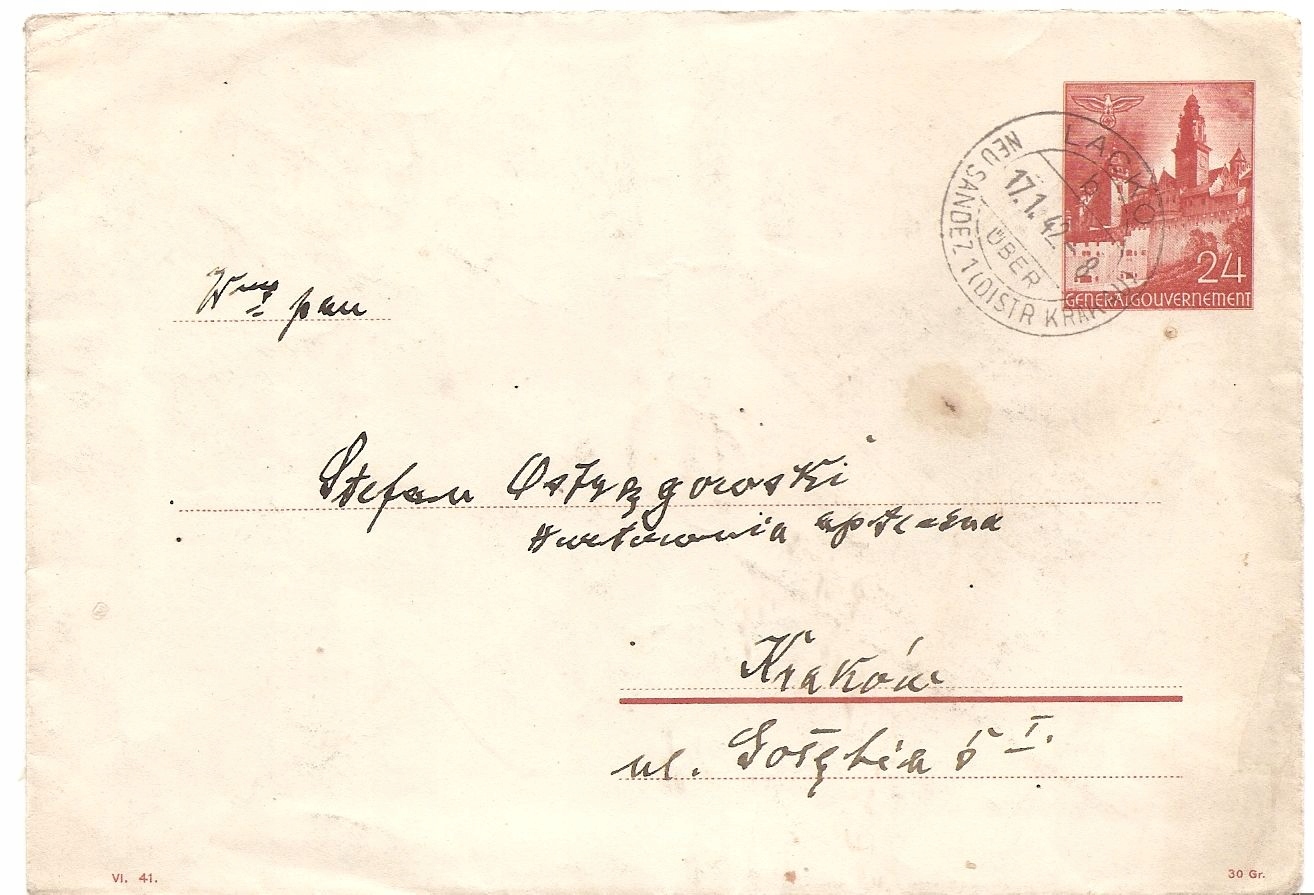 LĄCKO
b
17.1.42-8
ÜBER
NEU SANDEZ 1 (DISTR KRAKAU)
24
GENERALGOUVERNEMENT
Wny pan
Stefan Ostręgowski
Hurtownia apteczna
Kraków
ul. Gołębia 5 I.
VI. 41.
30 Gr.